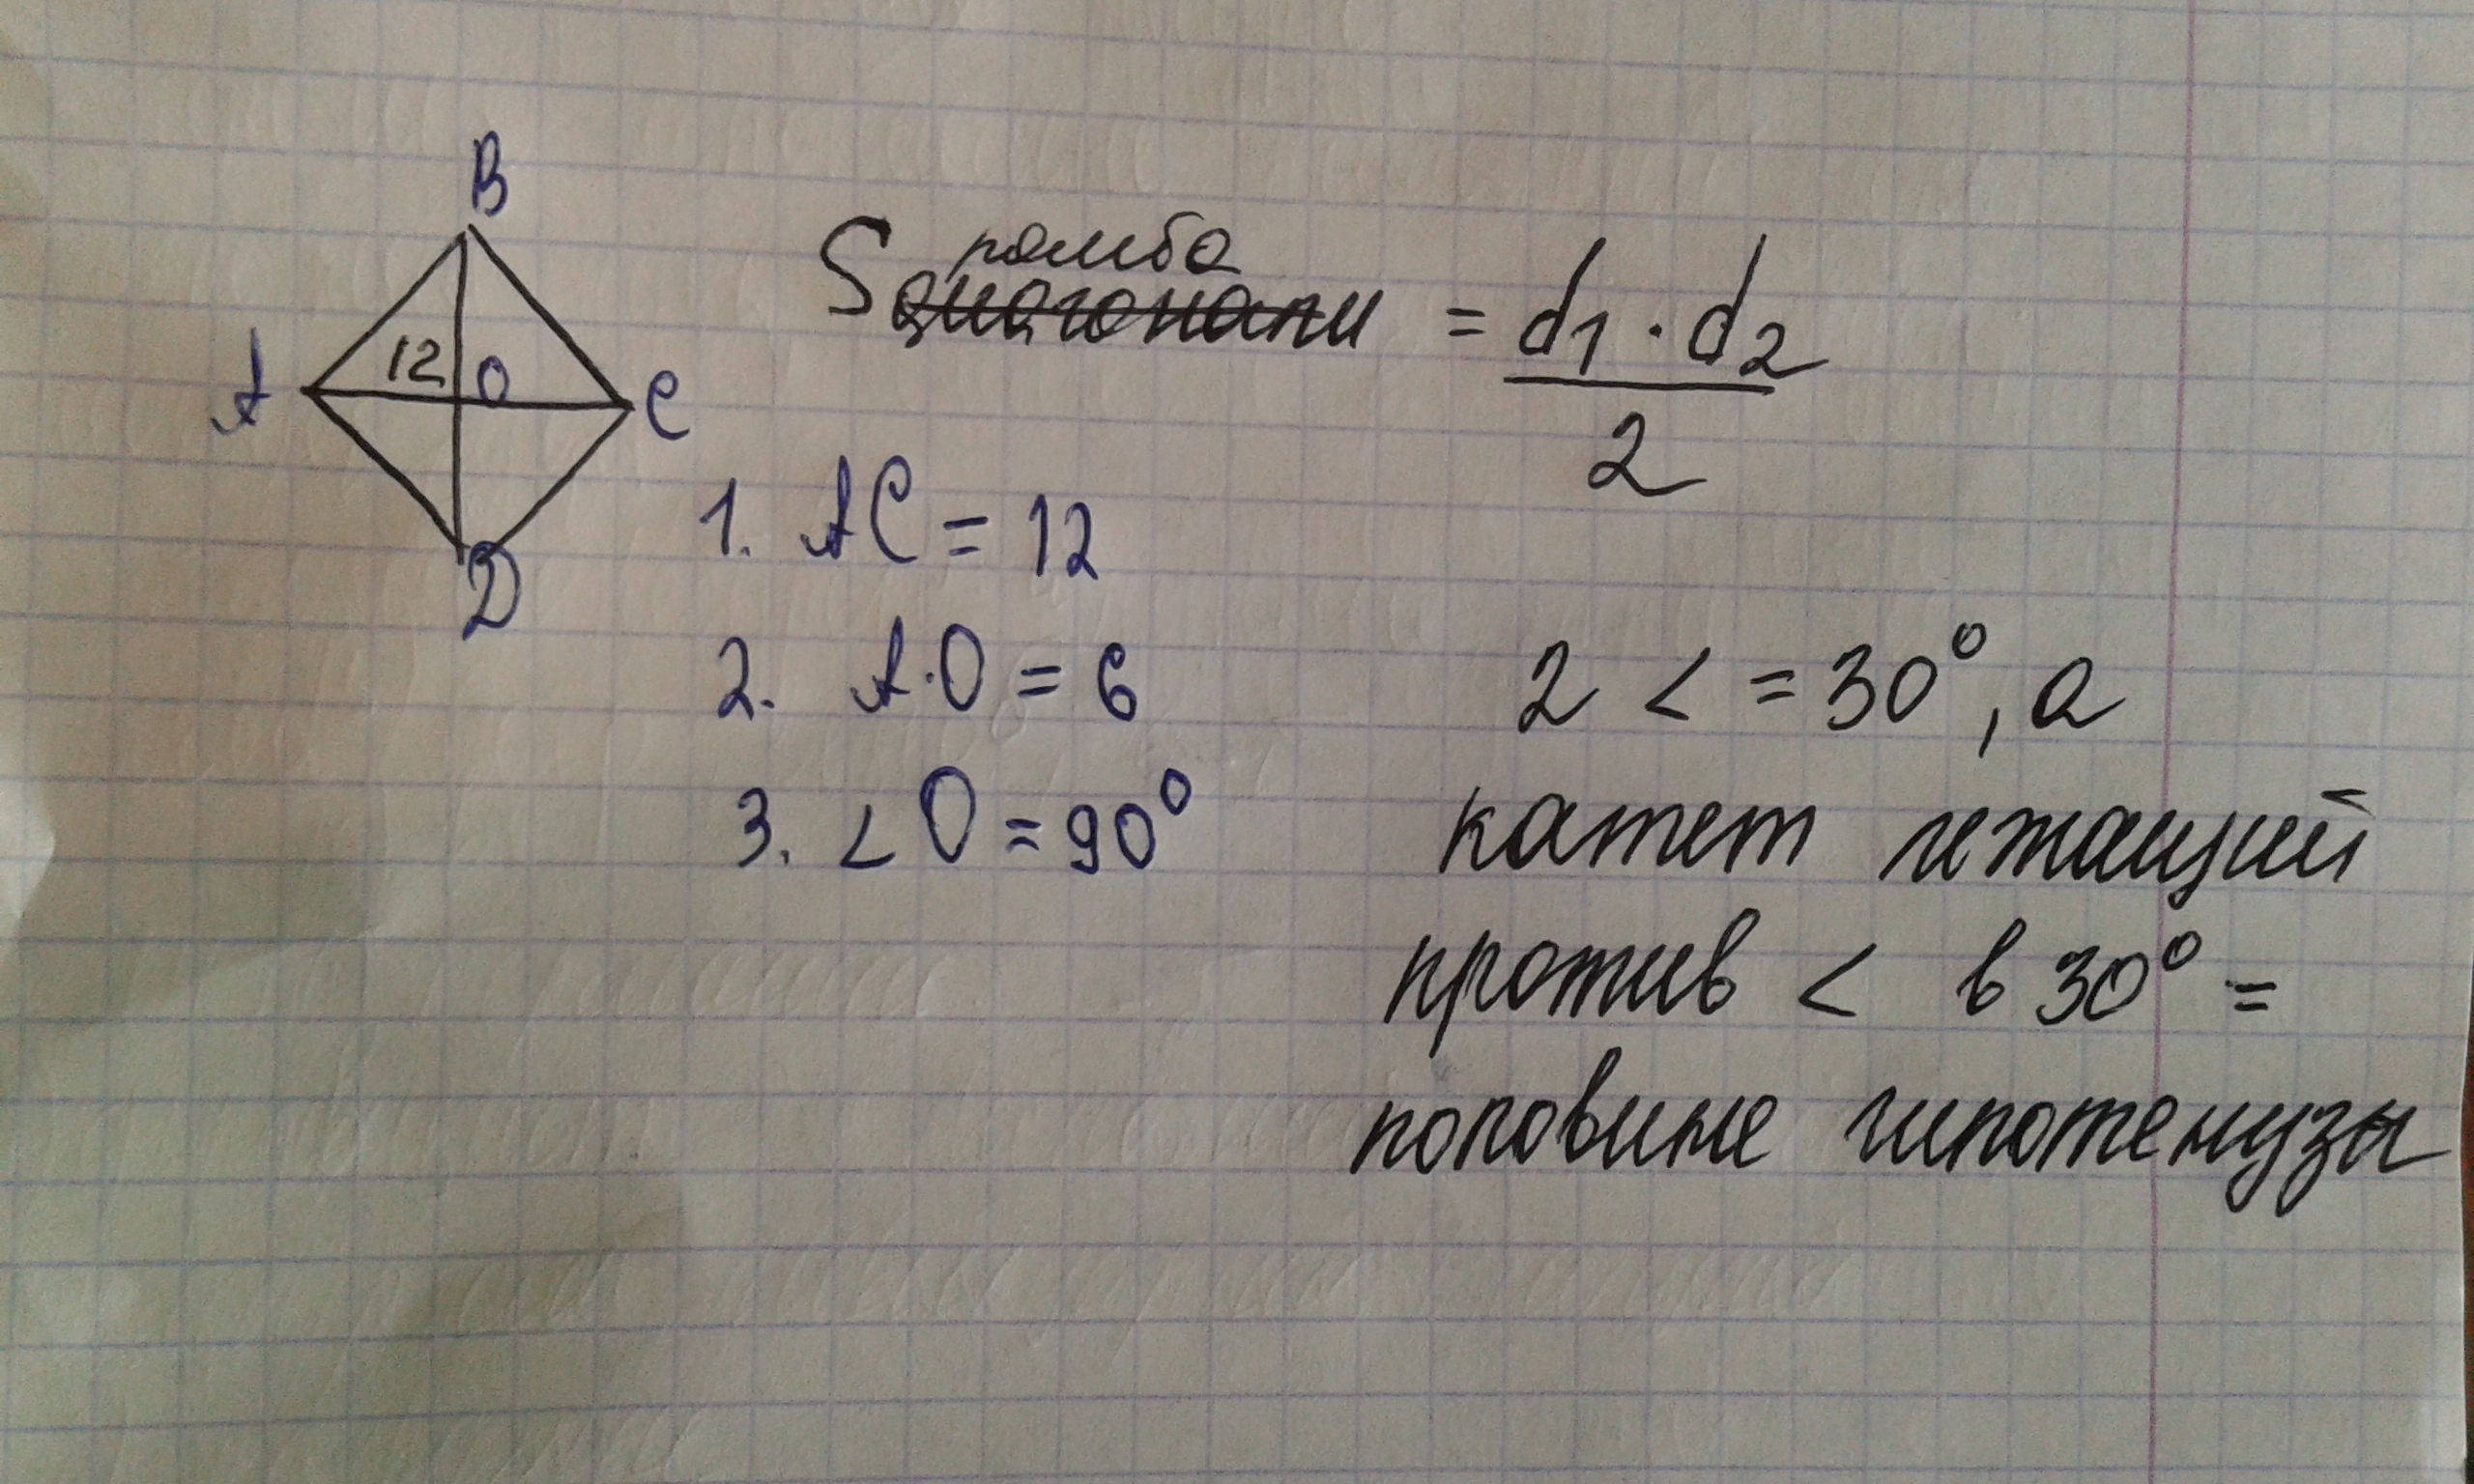 B
A
12
O
C
D
S ромба диагонали = d1 · d2
2
1. AC = 12
2. A·O = 6
3. < O = 90°
2 < = 30°, а
катет лежащий
против < в 30° =
половине гипотенузы